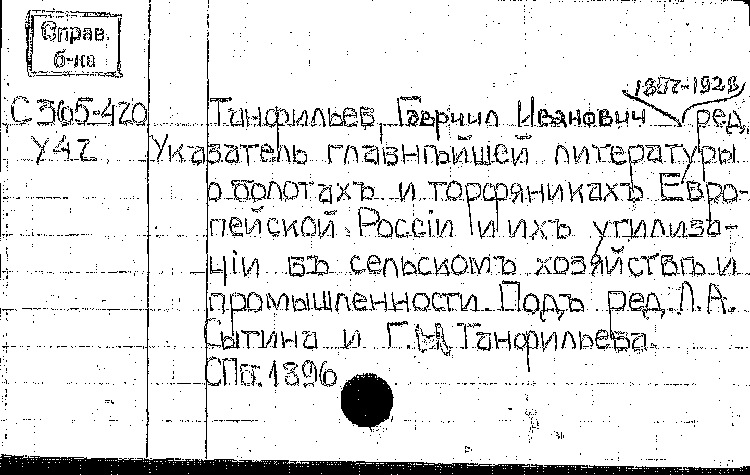 Справ.
б-ка
1857-1928
С 365-420 Танфильев, Гавриил Иванович ред.
У42 Указатель главнѣйшей литературы
о болотахъ и торфяникахъ Евро-
пейской Россіи и ихъ утилиза-
ціи въ сельскомъ хозяйствѣ и
промышленности. Подъ ред. Л. А.
Сытина и Г. И. Танфильева.
СПб. 1896